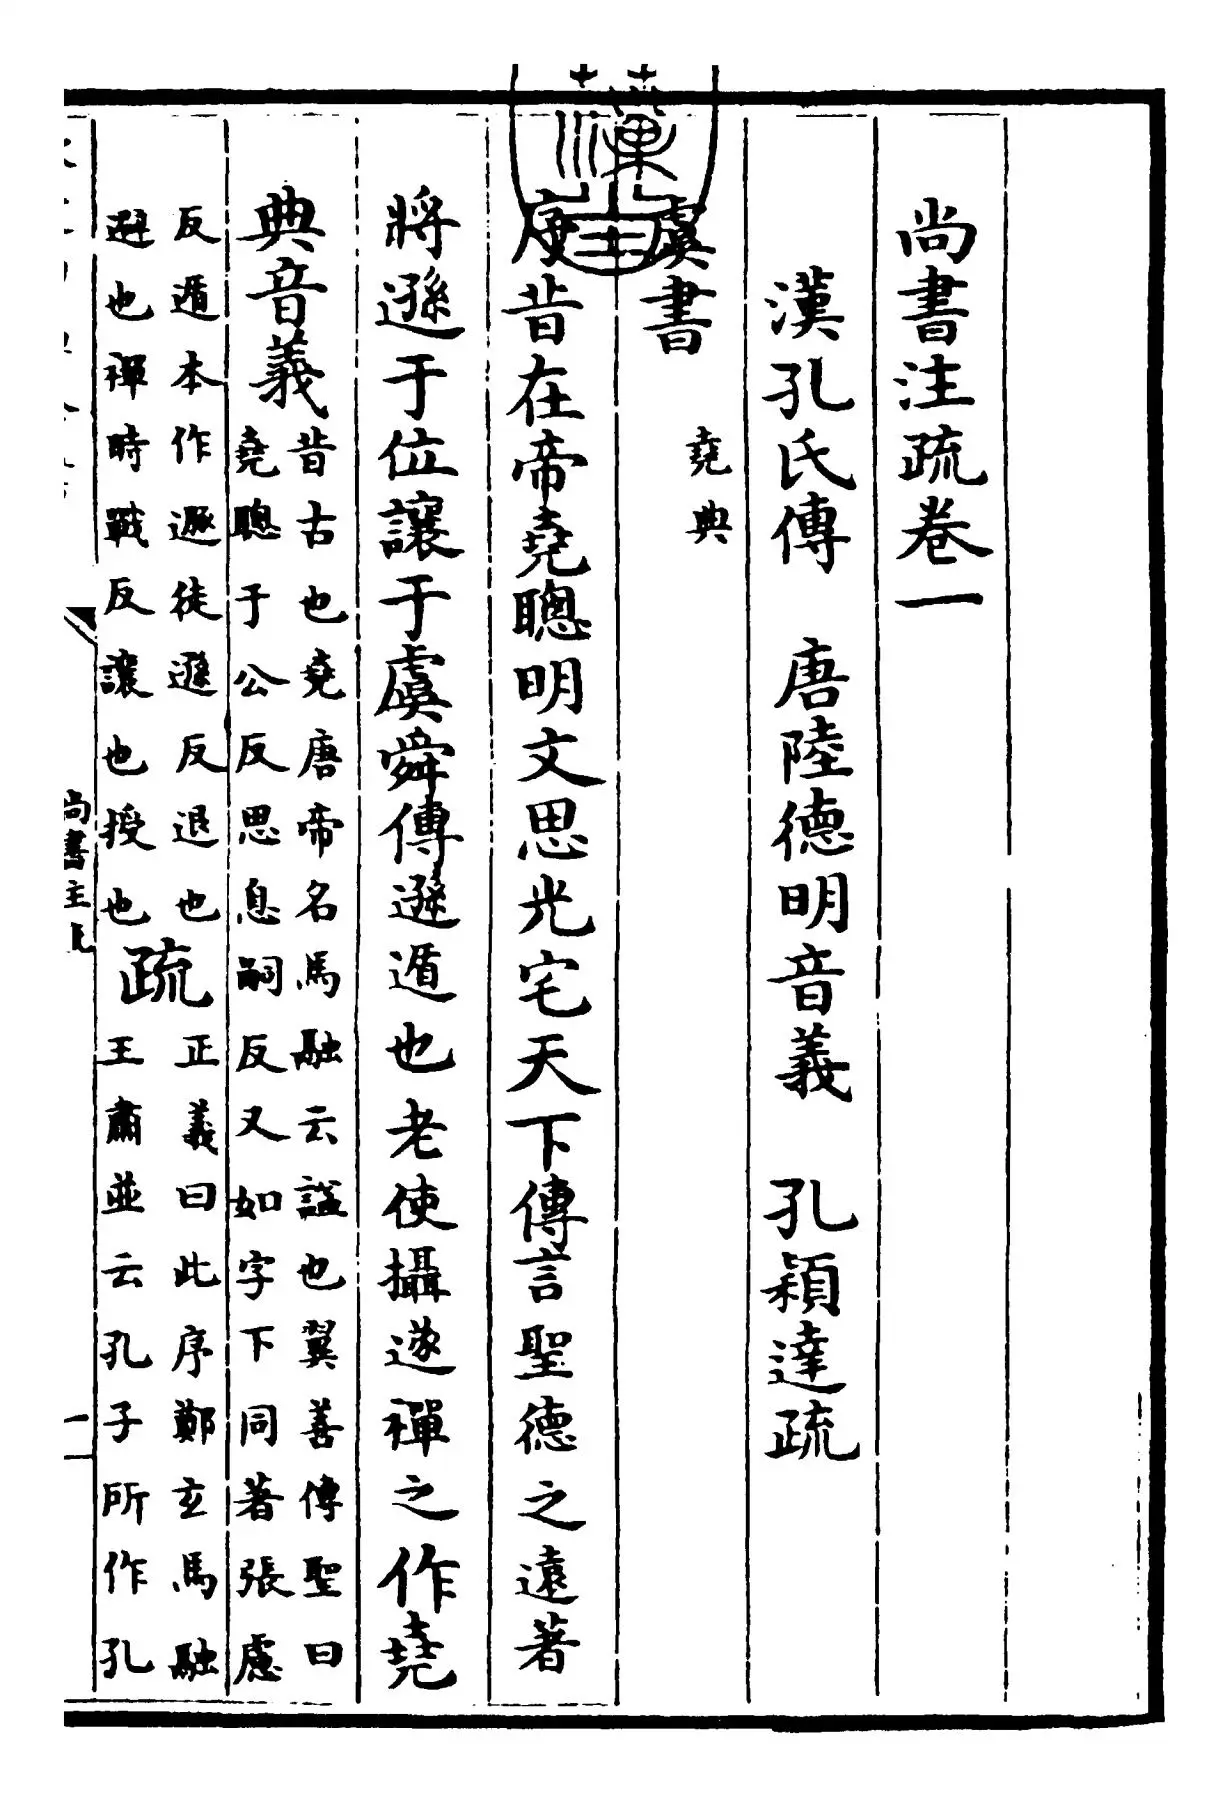 尚書注疏卷一
漢孔氏傳 唐陸德明音義 孔穎達疏
虞書
堯典
序昔在帝堯聰明文思光宅天下傳言聖德之遠著
將遜于位讓于虞舜傳遜遁也老使攝遂禪之作堯
典音義
昔古也堯唐帝名馬融云諡也翼善傳聖曰
堯聰于公反思息嗣反又如字下同著張慮
反遁本作遯徒遜反退也
避也禪時戰反讓也授也
疏
正義曰此序鄭玄馬融
王肅並云孔子所作孔
尚書注疏
一